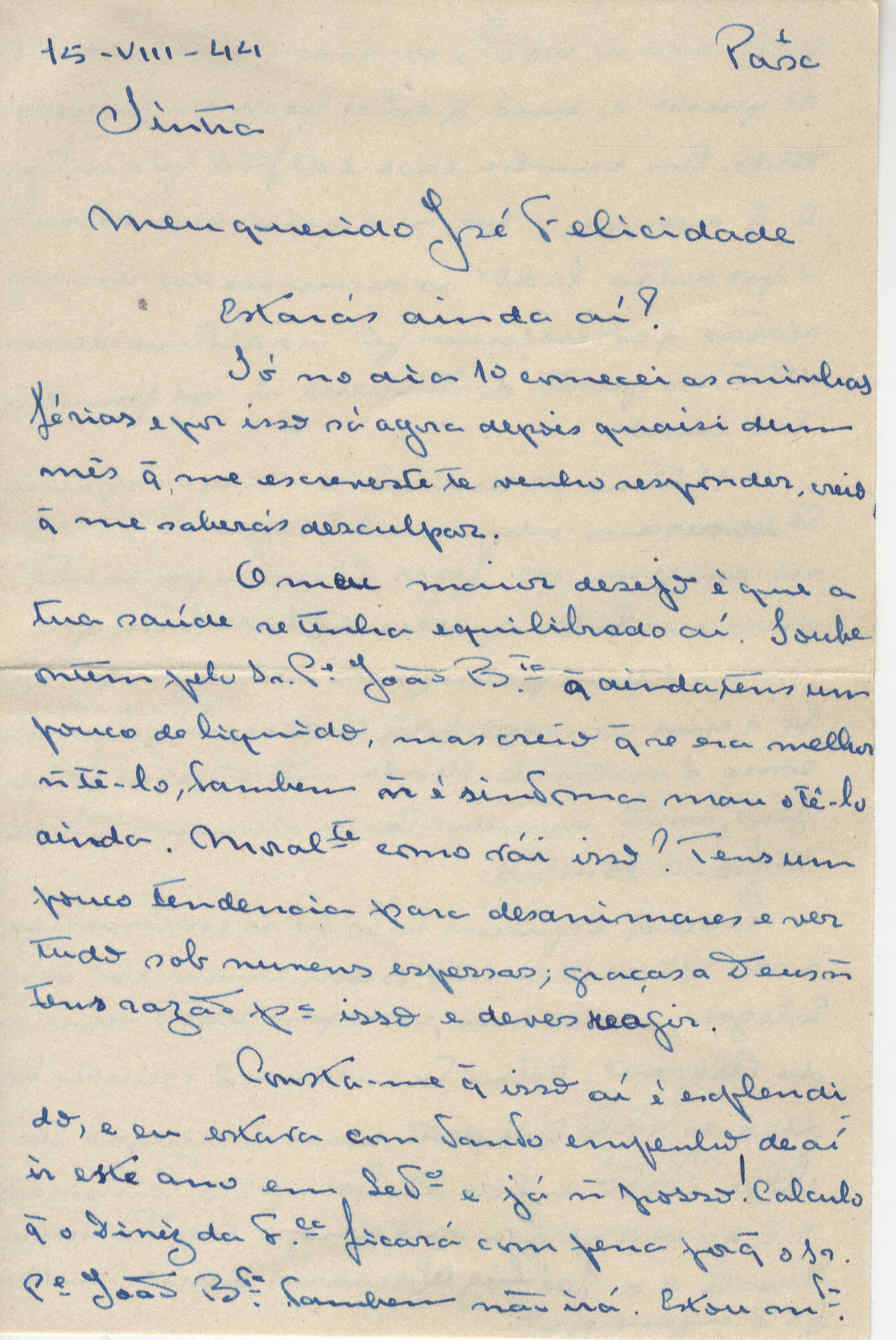 15-VIII-44
Sintra
Meu querido José Felicidade
Estarás ainda aí?
Só no dia 10 comecei as minhas
férias e por isso só agora depois quaisi dum
mês q̃ me escreveste te venho responder, creio,
q̃ me saberás desculpar.
O meu maior desejo è que a
tua saúde se tenha equilibrado aí. Soube
ontem pelo Sr. P.e João B.ta q̃ ainda tens um
pouco de liquido, mas creio q̃ se era melhor
ñ tê-lo, tambem ñ é sintoma mau o tê-lo
ainda. Moral.te como vái isso? Tens um
pouco tendencia para desanimares e ver
tudo sob nuvens espessas; graças a Deus ñ
tens razão p.a isso e deves reágir.
Consta-me q̃ isso aí é esplendi
do, e eu estava com tanto empenho de aí
ir este ano em Set.o e já ñ posso! Calculo
q̃ o Diniz da F.ca ficará com pena porq̃ o Sr.
P.e João B.ta tambem não irá. Estou m.to